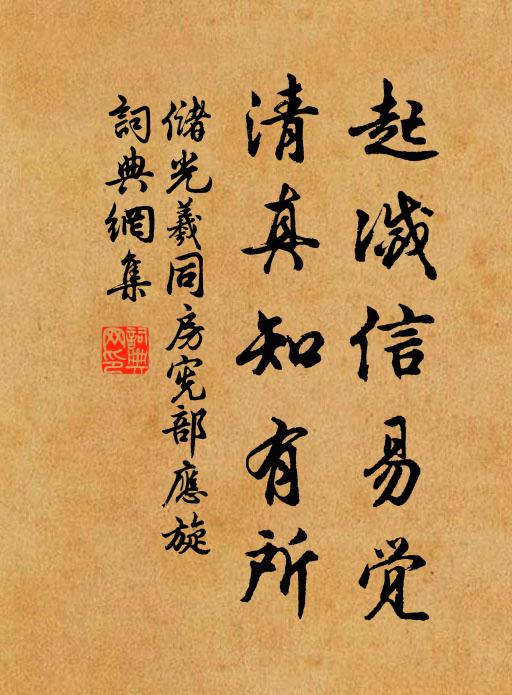 起滅信易觉
清真知有所
儲光羲同房宪部應旋
詞典網集
詞典
网印